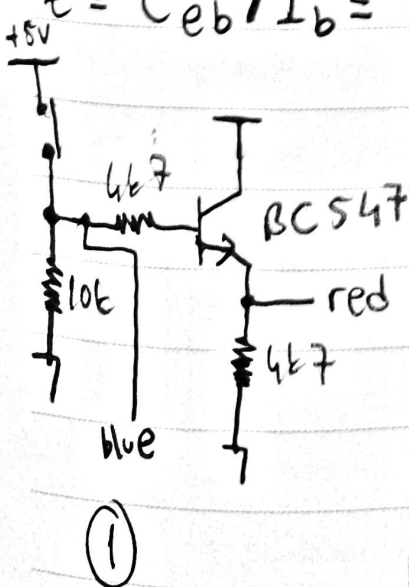 t = C_eb / I_b =
+5V
4k7
BC547
10k
red
4k7
blue
1